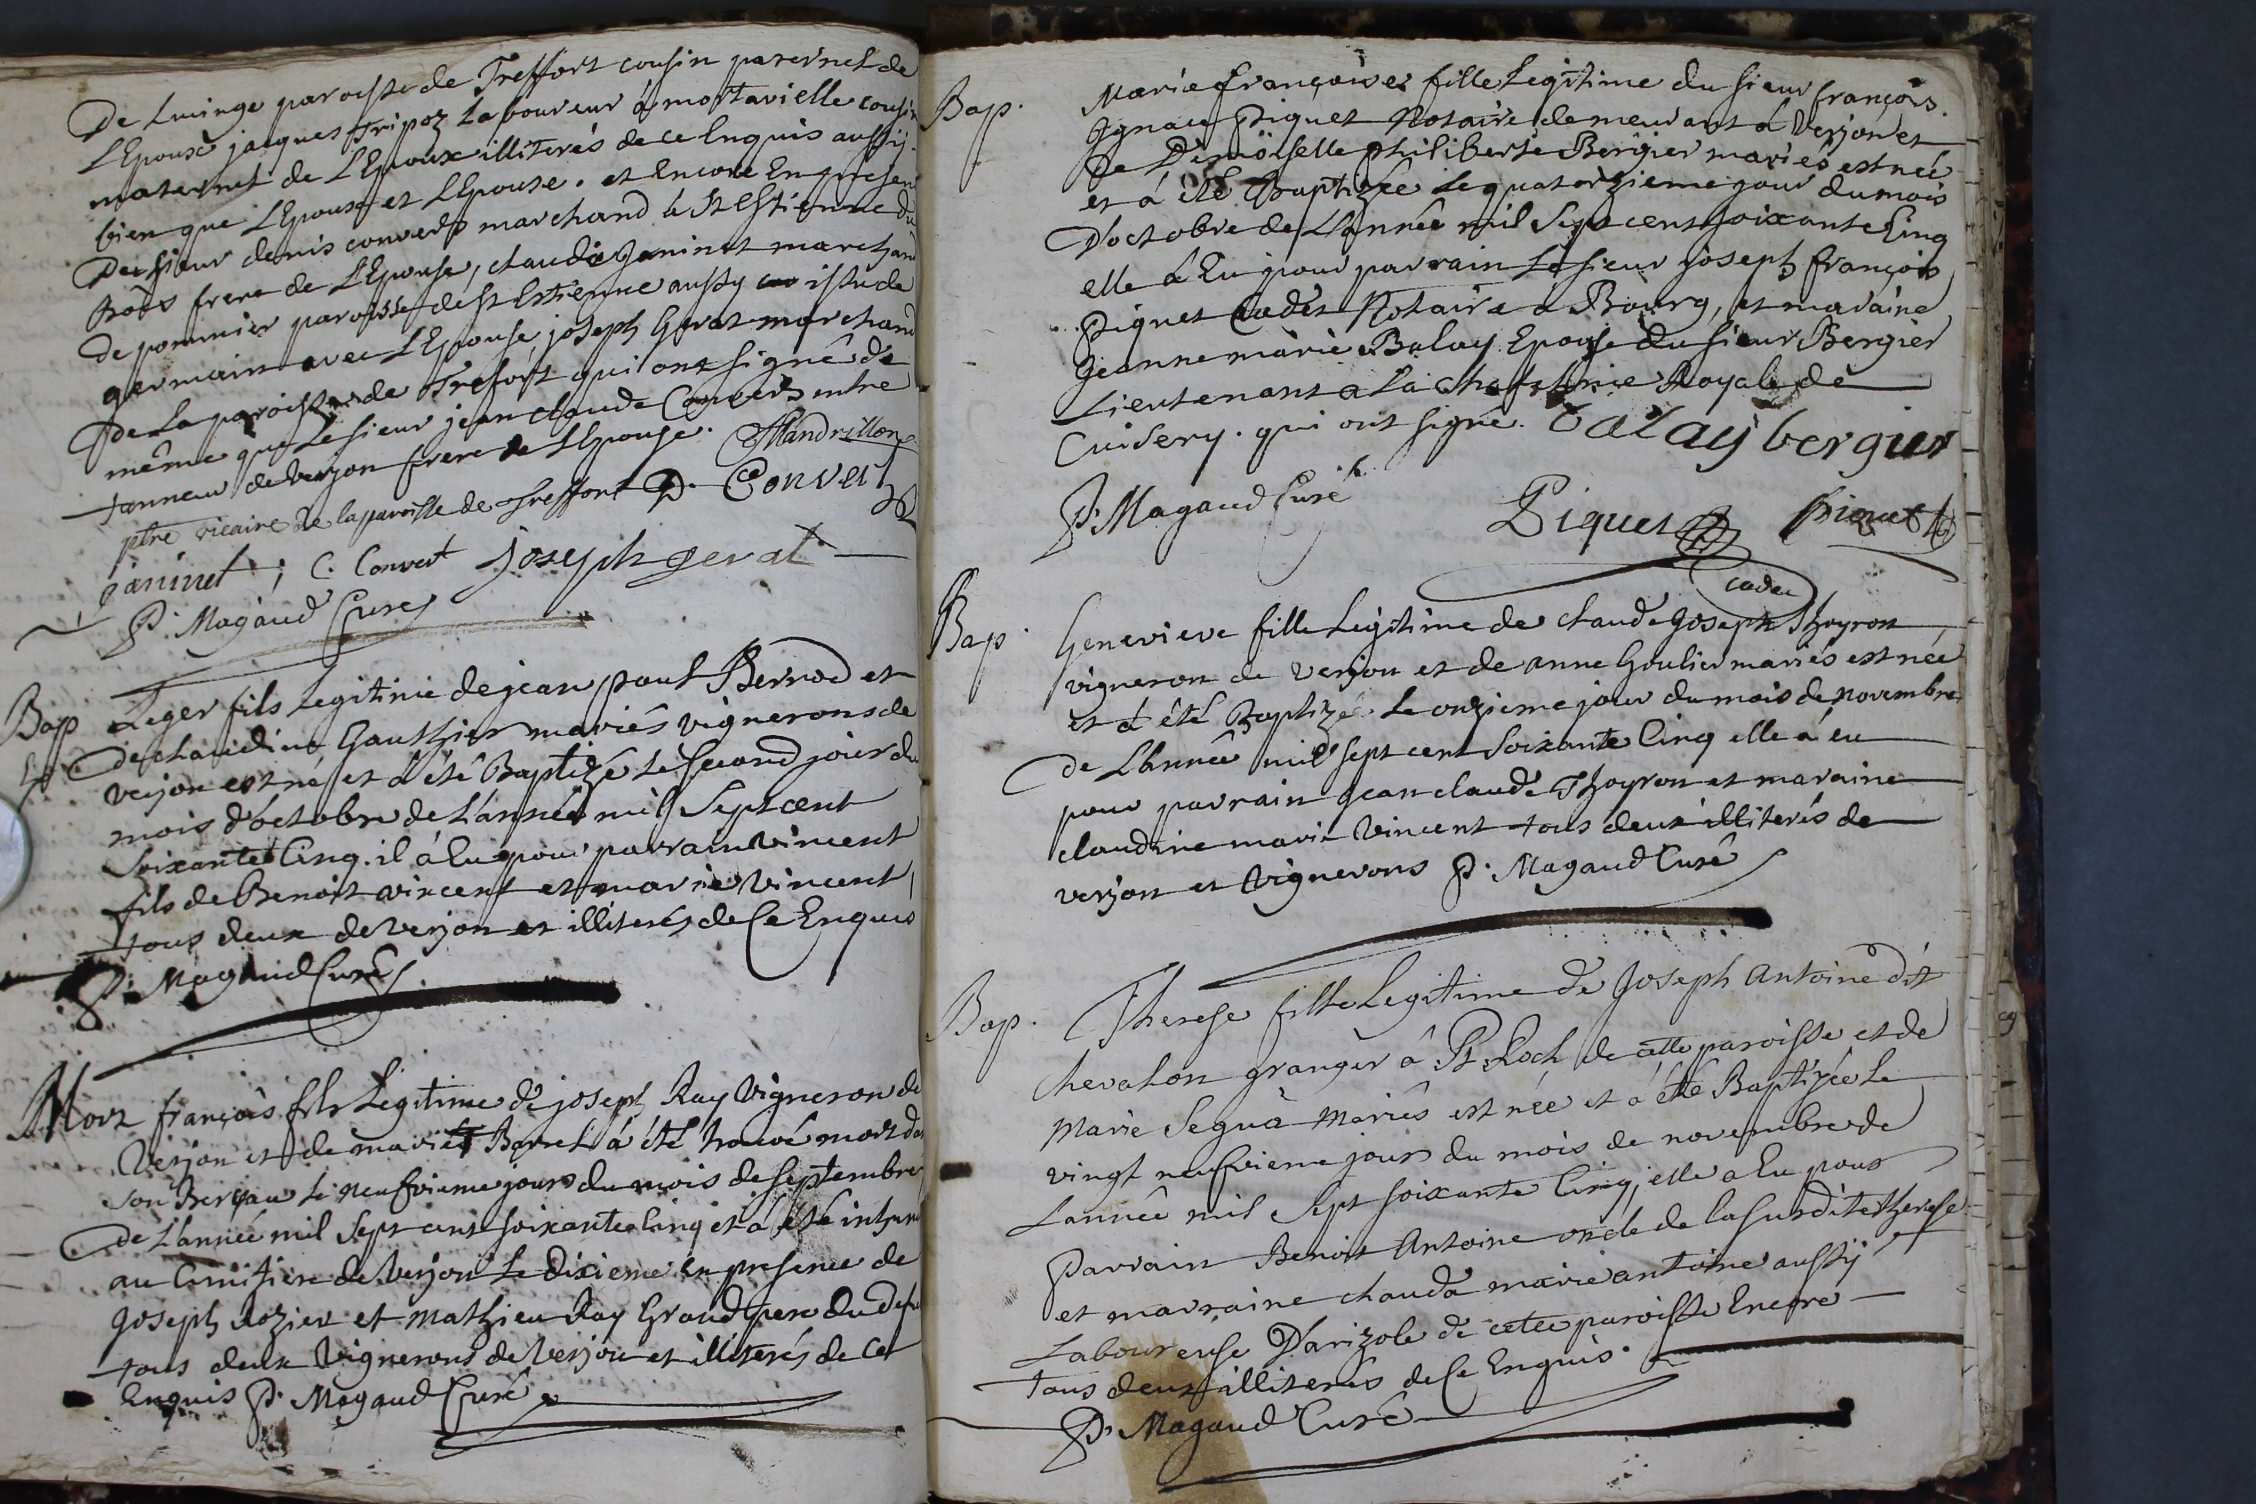 De Luinge paroisse de Treffort cousin paternel de
L'Epouse jacques Tripoz Laboureur à mortavielle cousin
maternel de L'Epoux illiterés de ce Enquis aussy
bien que L'Epoux et L'Epouse. et Encore En presen
De sieur denis convers marchand à St Estienne du
Bois frere de L'Epouse, claude Janinet marchand
de pommier paroisse de St Estienne aussy issu de
germain avec L'Epouse, joseph Gerat marchand
De La paroisse de Trefort qui ont signé de
même que Le sieur jean claude Convers
tanneur de verjon frere de L'Epouse. Mandrillon
ptre vicaire de la paroisse de Treffort D. Convert
janinet ; C. Convert joseph gerat
P. Magaud Curé
Bap Leger fils Legitime de jean paul Bernod et
De claudine Gauthier mariés vignerons de
verjon est né et à été Baptizé Le second jour du
mois d'octobre de L'année mil Sept cent
Soixante Cinq. il à Eu pour parrain vincent
fils de Benoit vincent et marie vincent
tous deux de verjon et illiterés de Ce Enquis
P. Magaud Curé
Mort françois fils Legitime de joseph Ray vigneron de
Verjon et de marie Borrel à été trouvé mort dans
son Berçau Le neufvieme jour du mois de septembre
de L'année mil Sept cent soixante Cinq et à été inhumé
au Cimitiere de Verjon Le dixieme En presence de
joseph rozier et mathieu Ray Grand pere du defu
tous deux vignerons de Verjon et illiterés de Ce
Enquis P. Magaud Curé
Bap. Marie françoise fille Legitime du sieur françois
Ignace Piquet Notaire demeurant à Verjon et
De Demoiselle philiberte Bergier mariés est née
et à été Baptizée Le quatorzieme jour du mois
D'octobre de L'année mil Sept cent soixante Cinq
elle à Eu pour parrain Le sieur joseph françois
Piquet Cadet Notaire à Bourg, et maraine
jeanne marie Balay Epouse du sieur Bergier
Lieutenant a La Royale de
Cuisery. qui ont signé. Balay bergier
P. Magaud Curé Piquet piquet
cadet
Bap. Genevieve fille Legitime de claude joseph Thoyron
vigneron de verjon et de anne Goulier mariés est née
et à été Baptizée Le onzieme jour du mois de novembre
de L'année mil sept cent Soixante Cinq elle à eu
pour parrain jean claude Thoyron et maraine
claudine marie Vincent tous deux illiterés de
verjon et Vignerons P. Magaud Curé
Bap. Therese fille Legitime de Joseph Antoine dit
chevalon granger à St Roch de cette paroisse et de
Marie Segua mariés est née et à été Baptizée Le
vingt neufvieme jour du mois de novembre de
L'année mil Sept soixante Cinq, elle a Eu pour
Parrain Benoit Antoine oncle de la susdite therese
et marraine clauda marie antoine aussy
Laboureuse D'arizole de cette paroisse Encore
tous deux illiterés de Ce Enquis.
P. Magaud Curé